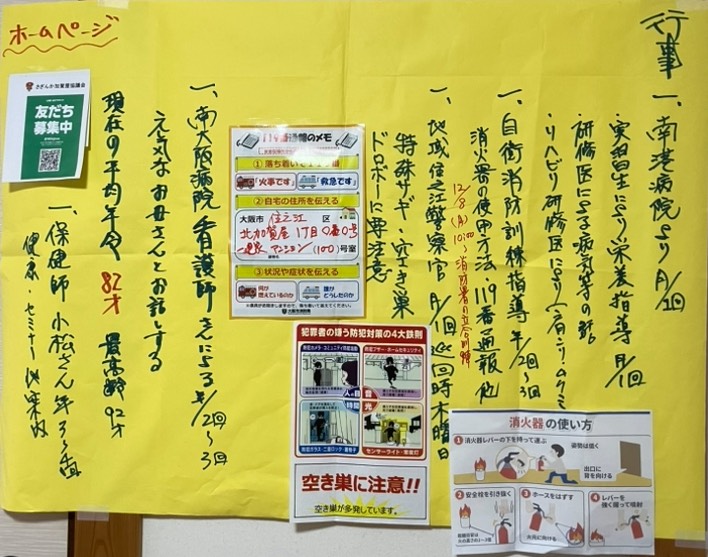 ホームページ
行事
一、南港病院より 月/2回
実習生により栄養指導 月/1回
研修医による病気等の話
・リハビリ研修医により
一、自衛消防訓練指導 年/2回〜3回
消火器の使用方法 119番通報 他
12/8(月)10:00〜消防署の立合訓練
一、地域住之江警察官 月/1回 巡回時 木曜日
特殊サギ・空き巣
ドロボーに要注意
一、南大阪病院看護師さんによる 年/2回〜3回
元気なお母さんとお話しする
現在の平均年令 82才 最高齢 92才
一、保健師 小松さん 年
健康・セミナー
さざんか加賀屋協議会
友だち
募集中
119通報のメモ
①落ち着いて
「火事です」
「救急です」
②自宅の住所を伝える
大阪市 住之江 区
北加賀屋 1丁目0番0号
マンション(100)号室
③状況や症状を伝える
何が
燃えているのか
誰が
どうしたのか
犯罪者の嫌う防犯対策の4大鉄則
防犯カメラ・コミュニティ共同活動
防犯ブザー・ホームセキュリティ
人の目
音
時間
光
防犯ガラス・二重ロック・面格子
センサーライト・防犯灯
空き巣に注意!!
空き巣が多発しています。
消火器の使い方
1 消火器レバーの下を持って運ぶ
姿勢は低く
出口に
背を向ける
2 安全栓を引き抜く
3 ホースをはずす
火元に向ける
4 レバーを
強く握って噴射